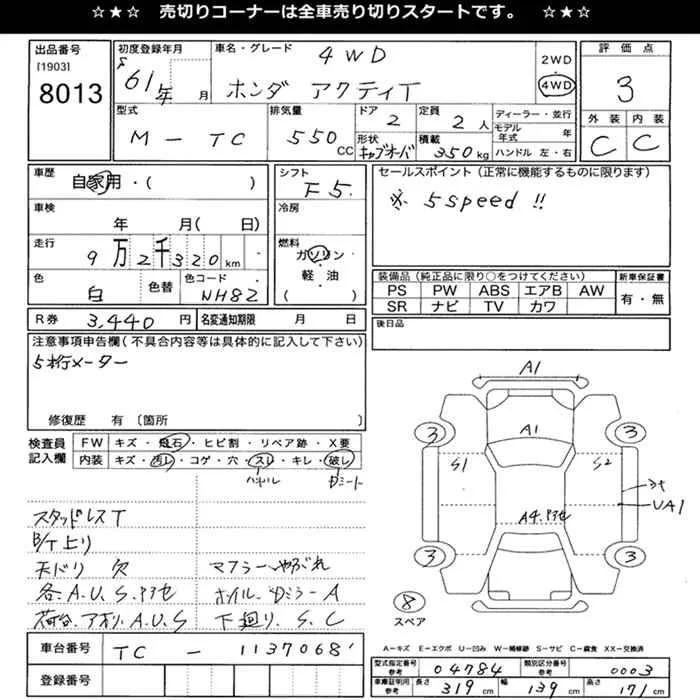 ☆★☆ 売切りコーナーは全車売り切りスタートです。 ☆★☆
出品番号
[1903]
8013
初度登録年月
S 61年 月
車名・グレード
4WD
ホンダ アクティT
2WD
・
4WD
評価点
3
型式
M - TC
排気量
550 CC
ドア
2
形状
キャブオーバ
定員
2 人
積載
350 kg
ディーラー・並行
モデル年式 年
ハンドル 左・右
外装 内装
C C
車歴
自家用・( )
車検
年 月( 日)
走行
9万2千320 km
色
白
色替
色コード
NH82
シフト
F5
冷房
燃料
ガソリン
軽油
( )
セールスポイント(正常に機能するものに限ります)
※ 5speed !!
装備品(純正品に限り○をつけてください)
PS PW ABS エアB AW
SR ナビ TV カワ
新車保証書
有・無
R券 3,440 円
名変通知期限 月 日
後日品
注意事項申告欄(不具合内容等は具体的に記入して下さい)
5桁メーター
修復歴 有〔箇所
検査員記入欄
FW キズ・飛石・ヒビ割・リペア跡・X要
内装 キズ・汚レ・コゲ・穴・スレ・キレ・破レ
ハンドル Dシート
スタッドレスT
B/T上り
天バリ 欠
マフラーやぶれ
各.A.U.S.アセ
ホイル.Dミラー A
荷台.アオリ.A.U.S
下廻り.S.C
車台番号
TC - 1137068
登録番号
A1
3 A1 3
S1 S2
UA1
A4.アセ
3 3
8
スペア
A-キズ E-エクボ U-凹み W-補修跡 S-サビ C-腐食 XX-交換済
型式指定番号 参考
04784
類別区分番号 参考
0003
車庫証明用 参考
長さ 319 cm
幅 139 cm
高さ 171 cm